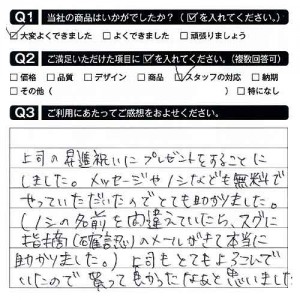 Q1 当社の商品はいかがでしたか?(☑を入れてください。)
☑大変よくできました □よくできました □頑張りましょう
Q2 ご満足いただけた項目に☑を入れてください。(複数回答可)
□価格 □品質 □デザイン □商品 ☑スタッフの対応 □納期
□その他( ) □特になし
Q3 ご利用にあたってご感想をおよせください。
上司の昇進祝いにプレゼントをすることに
しました。メッセージやノシなども無料で
やっていただいたのでとても助かりました。
(ノシの名前を間違えていたら、スグに
指摘(確認)のメールがきて本当に
助かりました。)上司もとてもよろこんで
いたので買って良かったなぁと思いました